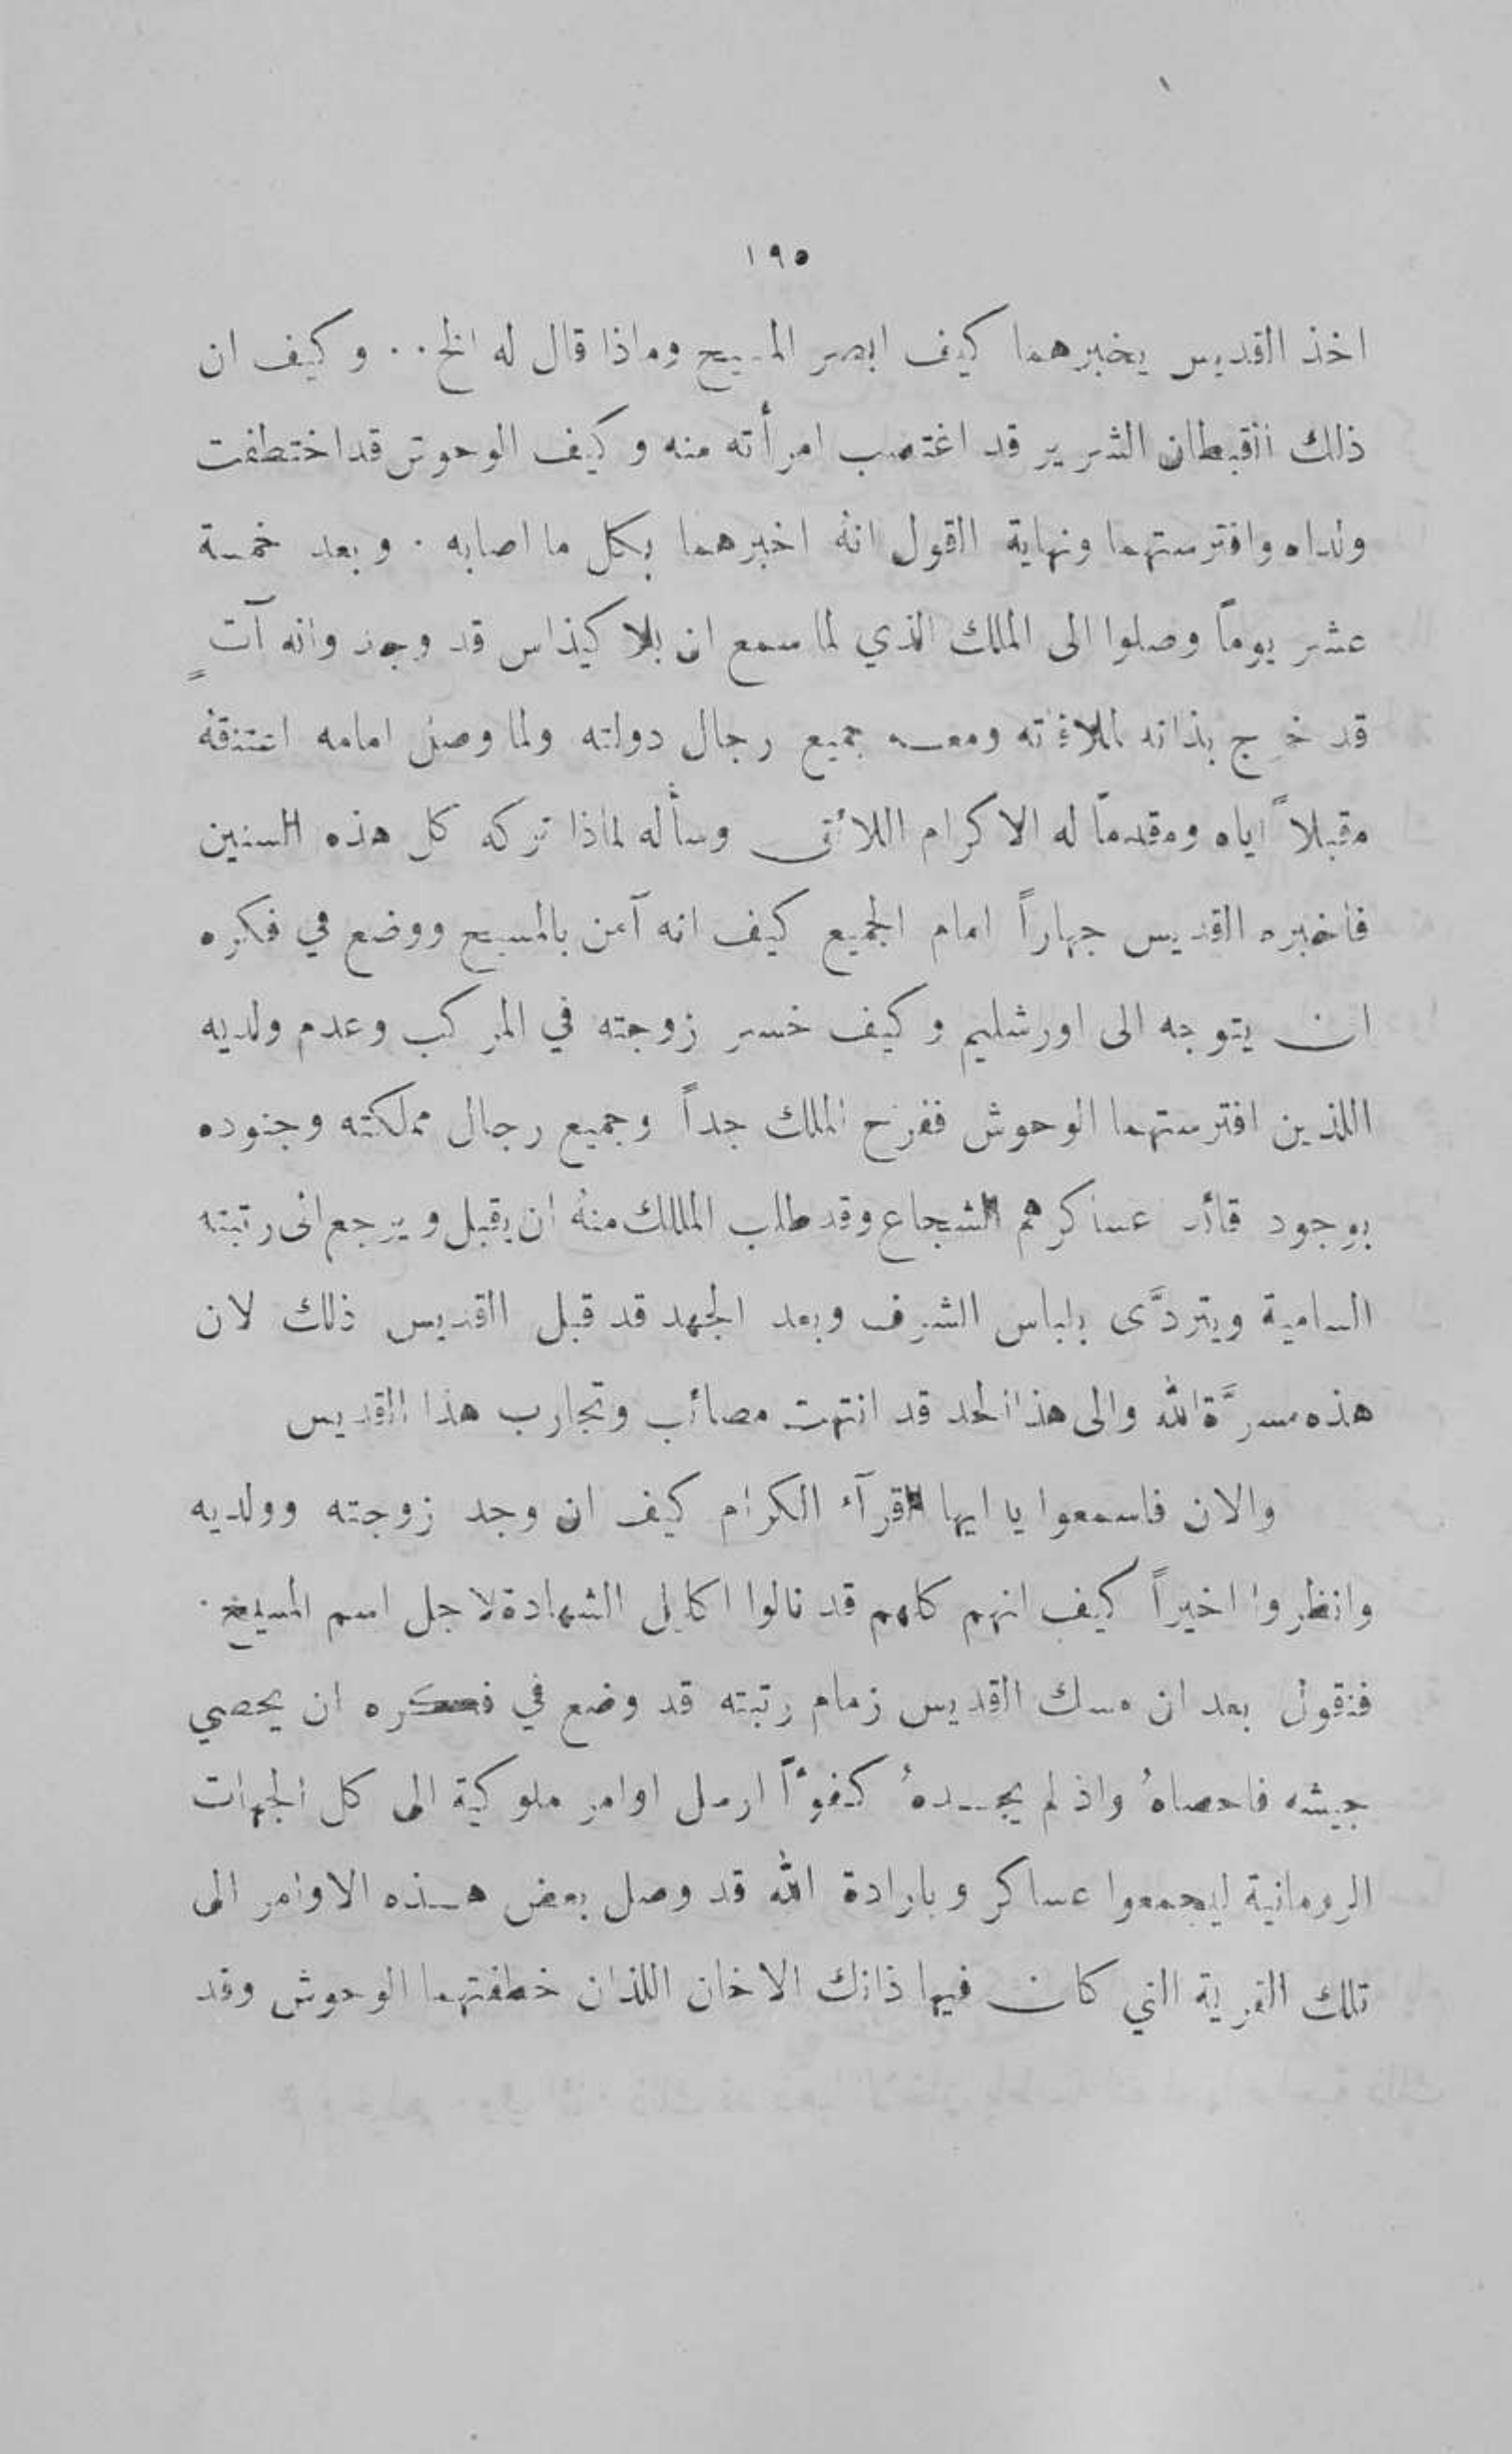 ١٩٥
اخذ القديس يخبرهما كيف ابصر المسيح وماذا قال له الخ ٠٠ وكيف ان
ذلك القبطان الشرير قد اغتصب امرأته منه وكيف الوحوش قد اختطفت
ولداه وافترستهما ونهاية القول انه اخبرهما بكل ما اصابه ٠ وبعد خمسة
عشر يوماً وصلوا الى الملك الذي لما سمع ان بلاكيذاس قد وجد وانه آتٍ
قد خرج بذاته لملاقاته ومعه جميع رجال دولته ولما وصل امامه اعتنقه
مقبلاً اياه ومقدماً له الاكرام اللائق وسأله لماذا تركه كل هذه السنين
فاخبره القديس جهاراً امام الجميع كيف انه آمن بالمسيح ووضع في فكره
ان يتوجه الى اورشليم وكيف خسر زوجته في المركب وعدم ولديه
اللذين افترستهما الوحوش ففرح الملك جداً وجميع رجال مملكته وجنوده
بوجود قائد عساكرهم الشجاع وقد طلب الملك منهُ ان يقبل ويرجع الى رتبته
السامية ويتردَّى بلباس الشرف وبعد الجهد قد قبل القديس ذلك لان
هذه مسرَّة الله والى هذا الحد قد انتهت مصائب وتجارب هذا القديس
والان فاسمعوا يا ايها القرآء الكرام كيف ان وجد زوجته وولديه
وانظروا اخيراً كيف انهم كلهم قد نالوا اكاليل الشهادة لاجل اسم المسيح ٠
فنقول بعد ان مسك القديس زمام رتبته قد وضع في فكره ان يحصي
جيشه فاحصاهُ واذ لم يجدهُ كفوءًا ارسل اوامر ملوكية الى كل الجهات
الرومانية ليجمعوا عساكر وبارادة الله قد وصل بعض هذه الاوامر الى
تلك القرية التي كان فيها ذانك الاخان اللذان خطفتهما الوحوش وقد